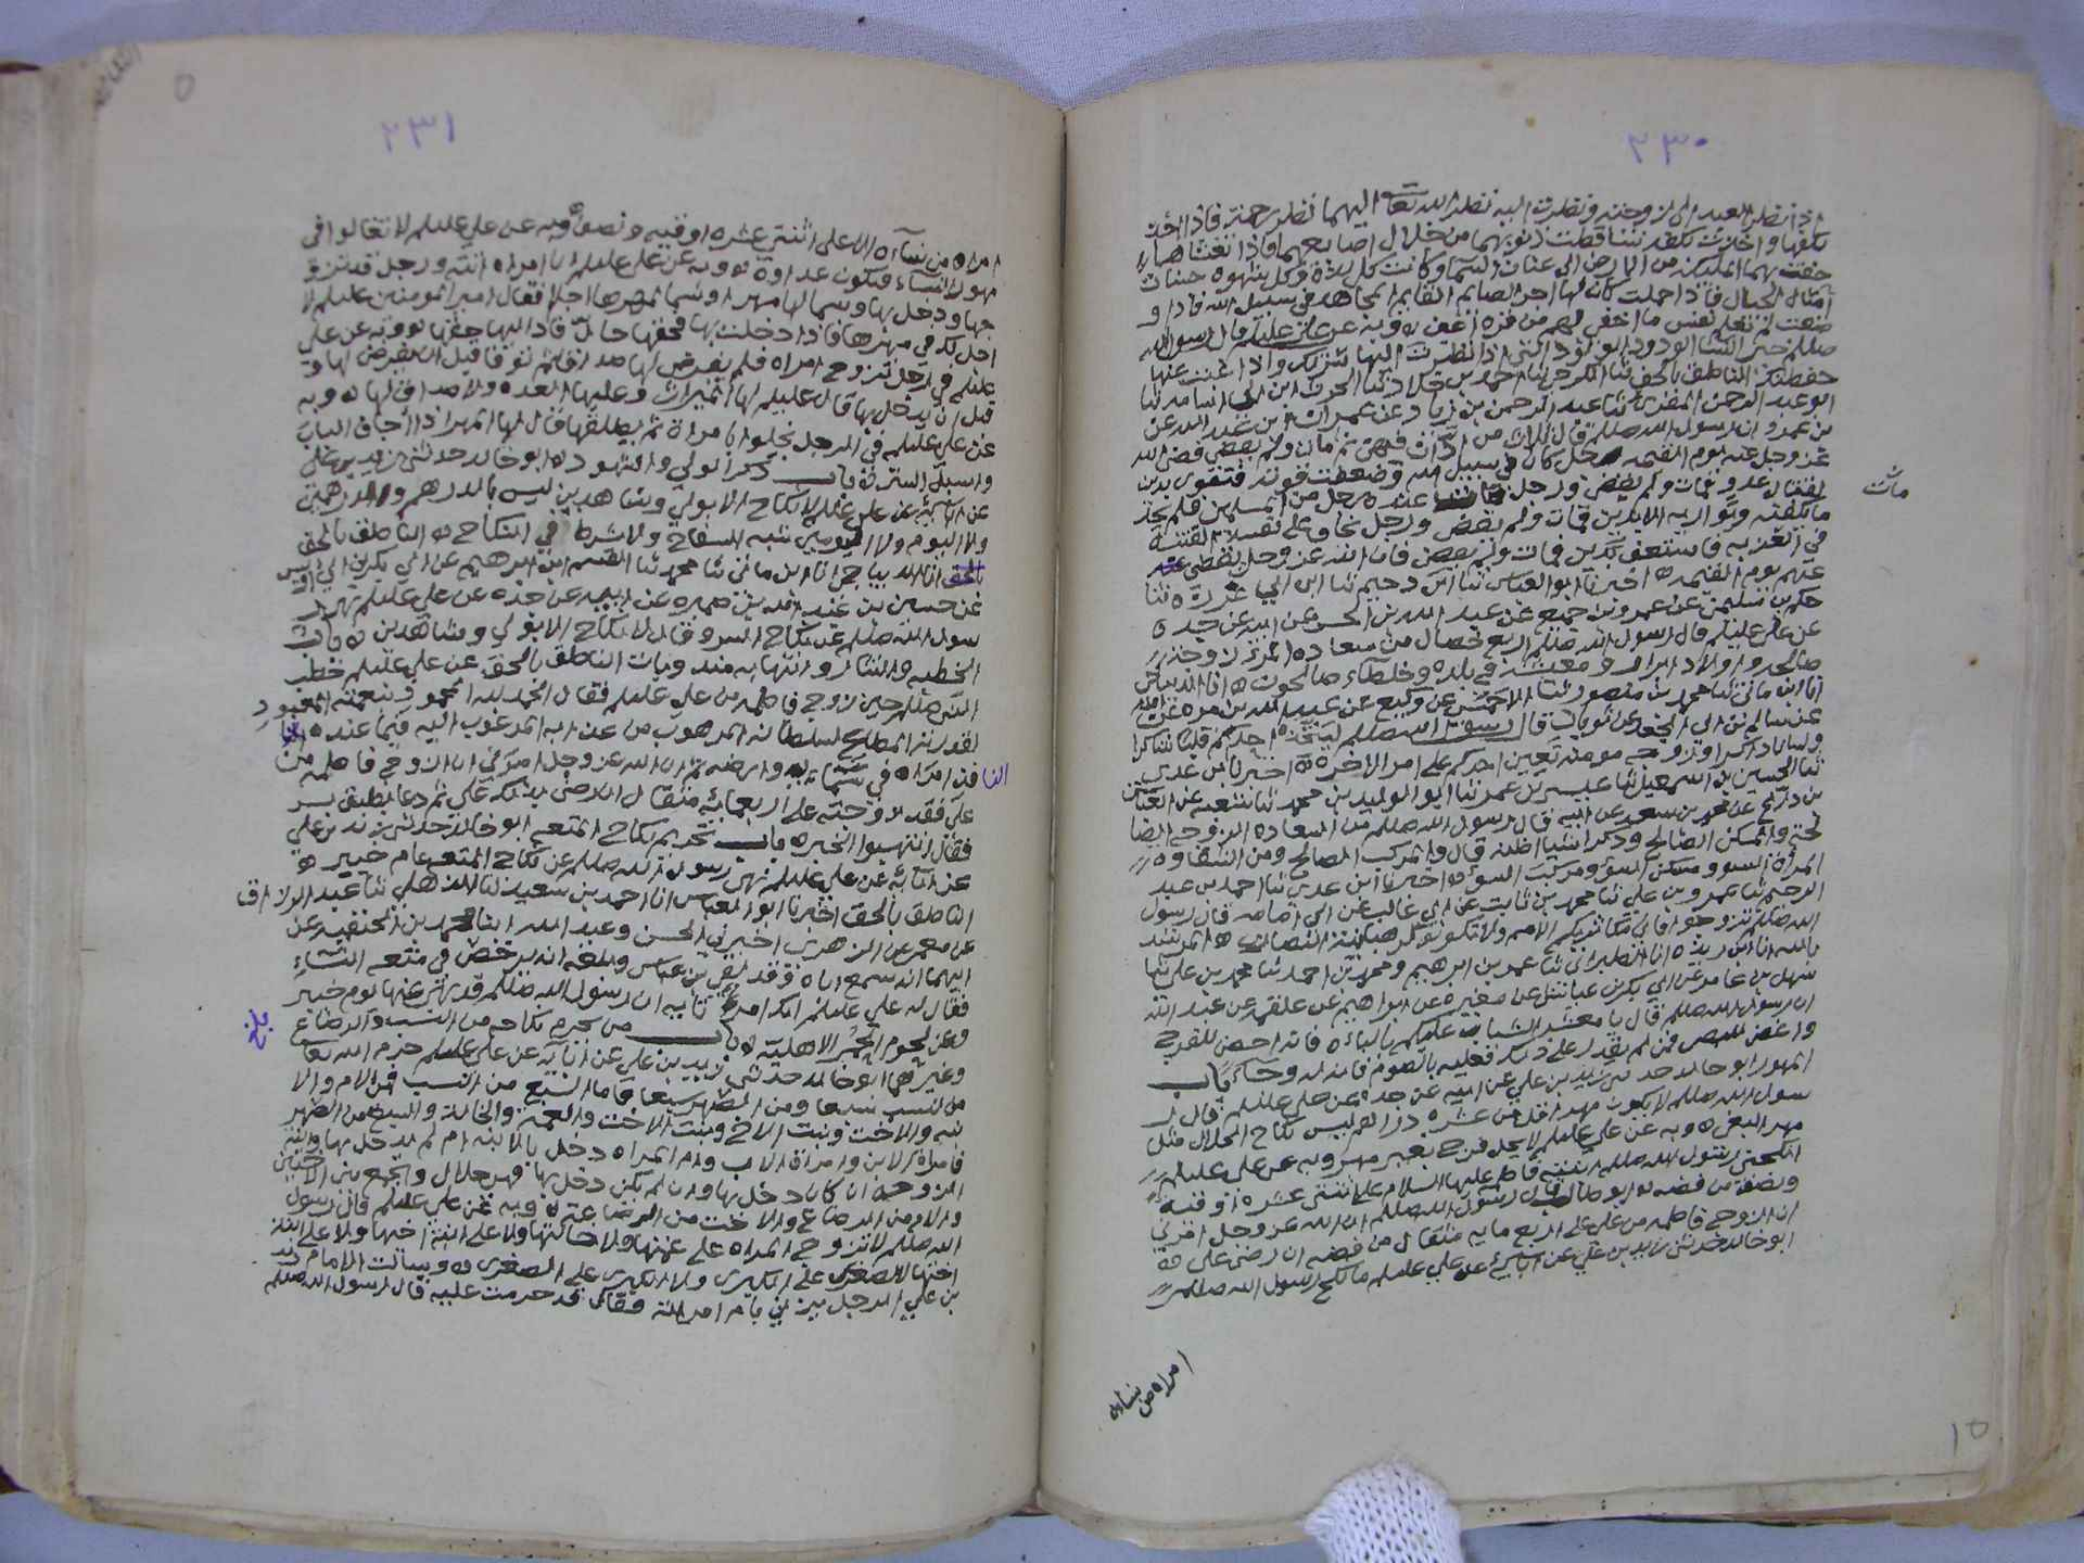 ٢٣٠
اذا نظر العبد الى زوجته ونظرت اليه نظر الله تعا اليهما نظر رحمة فاذا اخذ
بكفها واخذت بكفه تساقطت ذنوبهما من خلال اصابعهما فاذا تغشاها
حفت بهما المليكة من الارض الى عنان السما وكانت كل لذة وكل شهوة حسنات
امثال الجبال فاذا حملت كان لها اجر الصايم القايم المجاهد في سبيل الله فاذا و
ضعت لم تعلم نفس ما اخفى لهم من قرة اعين ه وبه عن علي عليلم قال رسول الله
صللم خير النسا الودود الولود التي اذا نظرت اليها سرتك واذا غبت عنها
حفظتك الناطق بالحق
ابو عبد الرحمن المقري ثنا عبد الرحمن بن زياد عن عمران بن عبد الله عن
بن عمرو ان رسول الله صللم قال ثلاث من ادّان فيهن ثم مات ولم يقض قضى الله
عز وجل عنه يوم القيمه رجل كان في سبيل الله فضعفت قوته فتقوى بدين
لقتال عدو فمات ولم يقض ورجل مات عنده رجل من المسلمين فلم يجد
مات
ما يكفنه ويواريه الا بدين فمات ولم يقض ورجل خاف على نفسه الفتنة
في العزبه فاستعف بدين فمات ولم يقض فان الله عز وجل يقضي عنه
عنهم يوم القيمه ه اخبرنا ابو العباس
عن علي عليلم قال رسول الله صللم اربع خصال من سعادة المرء زوجة
صالحه واولاد ابرار ومعيشته في بلده وخلطاء صالحون ه انا الديباجي
انا ابن ماتي ثنا محمد بن منصور
عن سالم بن ابي الجعد عن ثوبان قال رسول الله صللم ليتخذ احدكم قلبا شاكرا
ولسانا ذاكرا وزوجه مومنه تعين احدكم على امر الاخره ه اخبرنا بن عدي
عن محمد بن سعد عن ابيه قال رسول الله صللم من السعاده الزوجه الصا
لحة والمسكن الصالح
المرأة السوء ومسكن السؤ ومركب السوء ه اخبرنا ابن عدي ثنا احمد بن عبد
الرحيم ثنا عمرو بن علي ثنا محمد بن ثابت عن ابي غالب عن ابي امامه قال رسول
الله صللم تزوجوا فاني مكاثر بكم الامم ولا تكونوا كرهبانية النصارى ه المرشد
بالله انا ابن ريذه انا الطبراني
ان رسول الله صللم قال يا معشر الشباب عليكم بالباءه فانه احصن للفرج
واغض للبصر فمن لم يقدر على ذلك فعليه بالصوم فانه له وجاء باب
المهور ابو خالد حدثني زيد بن علي عن ابيه عن جده عن علي عليلم قال ر
سول الله صللم لا يكون مهر اقل من عشره دراهم ليس نكاح الحلال مثل
مهر البغي ه وبه عن علي عليلم لا يحل فرج بغير مهر وبه عن علي عليلم
انكحني رسول الله صللم ابنته فاطمه عليها السلام على اثنتي عشره اوقيه
ونصف من فضه ابو طالب قال رسول الله صللم ان الله عز وجل امرني
ان ازوج فاطمه من علي على اربع مايه مثقال من فضه ان رضي علي ه
ابو خالد حدثني زيد بن علي عن ابايه عن علي عليلم ما نكح رسول الله صللم
امراه من نسائه
٢٣١
امراه من نسآئه الا على اثنتي عشره اوقيه ونصف ه وبه عن علي عليلم لا تغالوا في
مهور النساء فيكون عداوة ه وبه عن علي عليلم ان امراه اتته ورجل قد تزو
جها ودخل بها وسما لها مهرا وسما لمهرها اجلا فقال امير المومنين عليلم لا
اجل لك في مهرها فاذا دخلت بها فحقها حالّ فاد اليها حقها ه وبه عن علي
عليلم في رجل تزوج امراه فلم يفرض لها صداقا ثم توفا قبل ان يفرض لها و
قبل ان يدخل بها قال عليلم لها الميراث وعليها العده ولا صداق لها ه وبه
عن علي عليلم في الرجل يخلوا بامراة ثم يطلقها قال لها المهر اذا اجاف الباب
واسبل الستر ه باب ذكر الولي والشهود ه ابو خالد حدثني زيد بن علي
عن ابائه عن علي عليلم لا نكاح الا بولي وشاهدين ليس بالدرهم والدرهمين
ولا اليوم ولا اليومين شبه السفاح ولا شرط في النكاح ه الناطق بالحق
انا الديباجي انا ابن ماتي ثنا محمد ثنا القسم ابن ابرهيم عن ابي بكر بن ابي اويس
عن حسين بن عبد الله بن ضميره عن ابيه عن جده عن علي عليلم نهى ر
سول الله صللم عن نكاح السر وقال لا نكاح الا بولي وشاهدين ه باب
الخطبه والنثار وانتهابه منه وبيان الناطق بالحق عن علي عليلم خطب
النبي صللم حين زوج فاطمه من علي عليلم فقال الحمد لله المحمود بنعمته المعبود
لقدرته المطاع لسلطانه المرهوب من عذابه المرغوب اليه فيما عنده
النافذ امره في سمائه وارضه ثم ان الله عز وجل امرني ان ازوج فاطمه من
علي فقد زوجته على اربعمائة مثقال ان رضي بذلك علي ثم دعا بطبق بسر
فقال انتهبوا الخبر ه باب تحريم نكاح المتعه ابو خالد حدثني زيد بن علي
عن ابائه عن علي عليلم نهى رسول الله صللم عن نكاح المتعه عام خيبر ه
الناطق بالحق اخبرنا ابو العباس انا احمد بن سعيد ثنا الذهلي ثنا عبد الرزاق
عن معمر عن الزهري اخبرني الحسن وعبد الله ابنا محمد بن الحنفيه عن
ابيهما انه سمع اباه وقد لقي بن عباس وبلغه انه يرخص في متعه النساء
فقال له علي عليلم انك امرؤ تايه ان رسول الله صللم قد نهى عنها يوم خيبر
وعن لحوم الحُمُر الاهلية ه باب من يحرم نكاحه من النسب والرضاع
بلغ
وغيرهما ابو خالد حدثني زيد بن علي عن ابايه عن علي عليلم حرم الله تعا
من النسب سبعا ومن الصهر سبعا فاما السبع من النسب فهي الام والا
بنه والاخت وبنت الاخ وبنت الاخت والعمة والخالة والسبع من الصهر
فامراة الابن وامراة الاب وام المراه دخل بالابنه ام لم يدخل بها وابنة
الزوجه ان كان دخل بها وان لم يكن دخل بها فهي حلال والجمع بين الاختين
والام من الرضاع والاخت من الرضاعة ه وبه عن علي عليلم قال رسول
الله صللم لا تزوج المراه على عمتها ولا خالتها ولا على ابنة اخيها ولا على ابنة
اختها لا الصغرى على الكبرى ولا الكبرى على الصغرى ه وسالت الامام زيد
بن علي الرجل يزني بام امراته فقال قد حرمت عليه قال رسول الله صللم